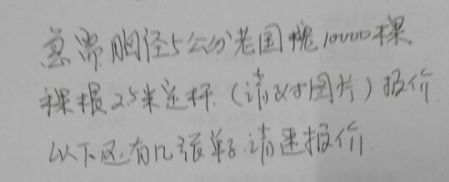 急需胸径5公分老国槐10000棵
裸根2.5米定杆（请对图片）报价
以下还有几张单子请速报价